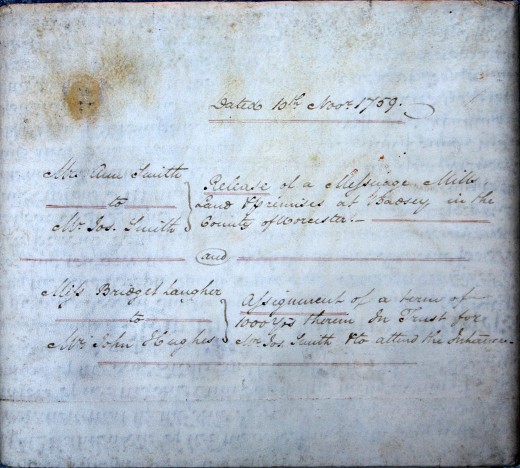 Dated 10th Novr. 1759.
Mrs. Ann Smith
to
Mr. Jos. Smith
Release of a Messuage Mills
Land & Premises at Badsey in the
County of Worcester.
and
Miss Bridget Laugher
to
Mr. John Hughes
Assignment of a term of
1000 Yrs therein In Trust for
Mr. Jos. Smith & to attend the Inheritance